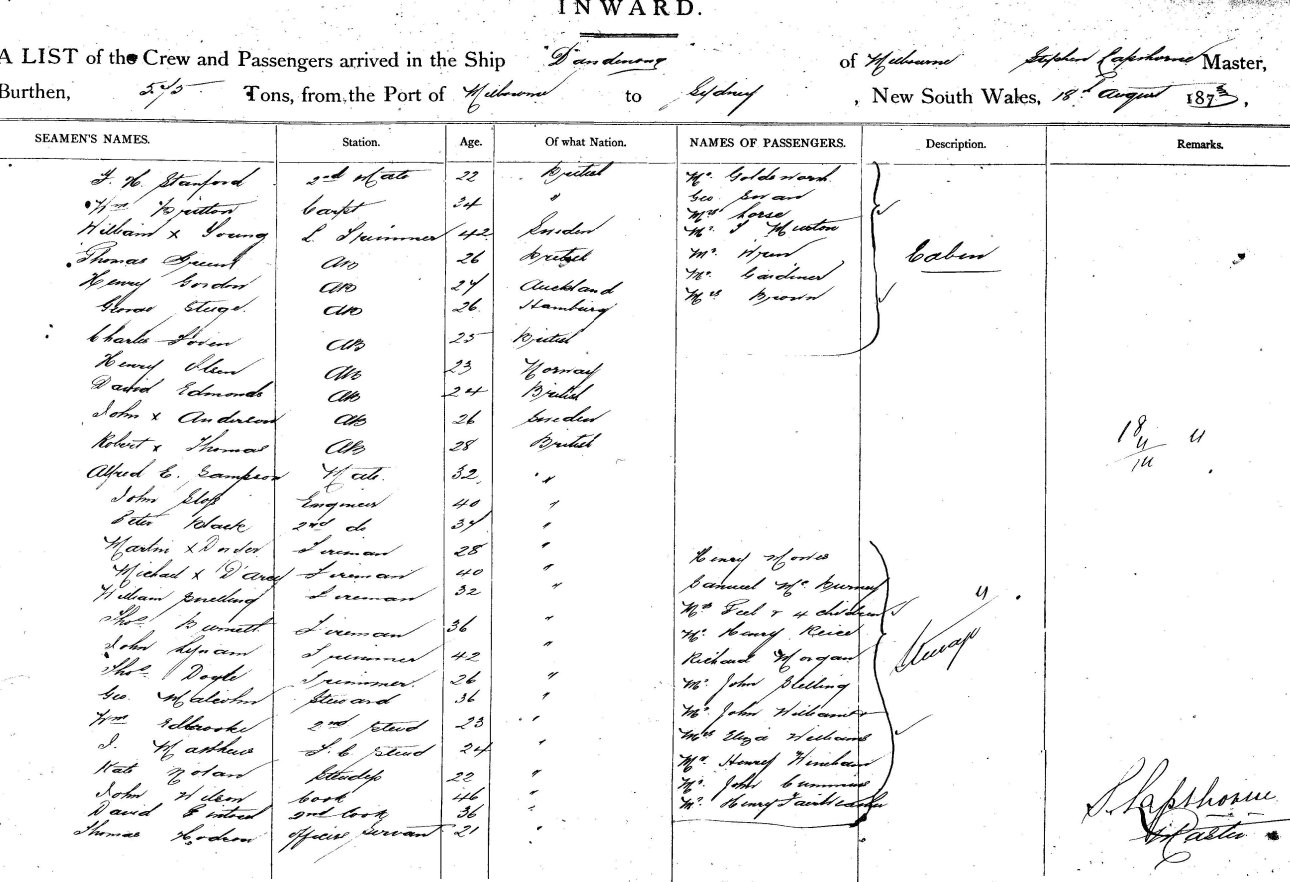 INWARD.
A LIST of the Crew and Passengers arrived in the Ship "Dandenong of Melbourne Stephen Lapthorne Master,
Burthen, 545 Tons, from the Port of Melbourne to Sydney, New South Wales, 18th August 1873,
SEAMEN'S NAMES. Station. Age. Of what Nation. NAMES OF PASSENGERS. Description. Remarks.
Stanford 2nd Mate 22 British
Wm Britton Carpt 34 " Geo Swan
William x Young L. Trimmer 42 Sweden Mrs
Thomas AB 26 British Mr Wren
Henry Gordon AB 27 Auckland Mr Gardiner
George AB 26 Hamburg Mrs Brown
Cabin
Charles AB 25 British
Henry Olsen AB 23 Norway
David Edmonds AB 24 British
John x Anderson AB 26 Sweden
Robert x Thomas AB 28 British
Alfred E. Sampson Mate 32 "
John Engineer 40 "
Peter Black 2nd do 37 "
Martin x Fireman 28 " Henry
Michael x D'Arcy Fireman 40 " Samuel McBurney
William Snelling Fireman 32 " Mrs Peel & 4 children
Thos Burnett Fireman 36 " Mr Henry
John Lynam Trimmer 42 " Richard Morgan
Steerage
Thos Doyle Trimmer 26 " Mr John Stelling
Geo. Malcolm Steward 36 " Mr John Williams
Wm Edbrooke 2nd Stewd 23 " Mrs Eliza Williams
Matthews Stewd 24 " Mr Henry
Kate Nolan Stewdss 22 " Mr John Cummins
John Wilson Cook 46 " Mr Henry
David 2nd Cook 36 "
Thomas Hodson Officers Servant 21 "
18
4
14
S Lapthorne
Master